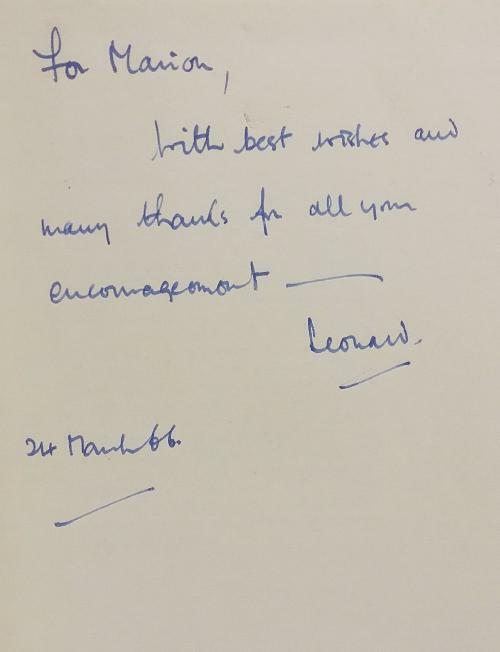 For Marion,
With best wishes and
many thanks for all your
encouragement —
Leonard.
24 March 66.